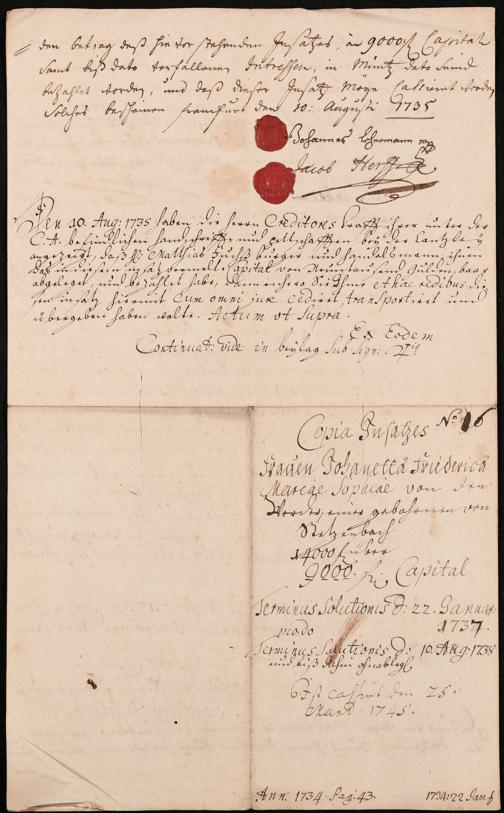 den betrag deß hievorstehenden Insatzes, à 9000 fl Capital
samt biß dato verfallenen Interessen, in Müntz dato seind
bezahlet worden, und daß dieser Insatz möge Cassiret werden
Solches bescheinen Franckfurt den 10: Augusti 1735
Johannes
Jacob
Den 10. Aug: 1738 haben die Herrn Creditores krafft ihrer unter der
C.A. befindlichen handschrifft und pettschafften bey der Cantzley
angezeigt, daß H. Matthias Fuchs burger und handelsmann ihnen
das in diesem insatz vermelte Capital von Neuntausend Gülden, baar
abgeleget, und bezahlt habe, dannenhero Sie Ihme et hæredibus die-
sen insatz hiermit Cum omni jure cediret, transportiret und
übergeben haben wolte. Actum ut Supra.
Ex Eodem
Continuat: vide in beylag Sub Sign:
Copia Insatzes No. 16
Frauen Johanetta Friederica
Mariae Sophiae von den
Werder, einer gebohrnen von
Retzenbach
14000 f über
9000. fl. Capital
Terminus Solutionis d. 22. Januar.
modo 1737.
Terminus Solutionis d: 10. Aug. 1738
und biß dahin ohnablegl
Ist cassirt den 25.
Mart. 1745.
Ann. 1734. Pag. 43. 1734: 22 Jan